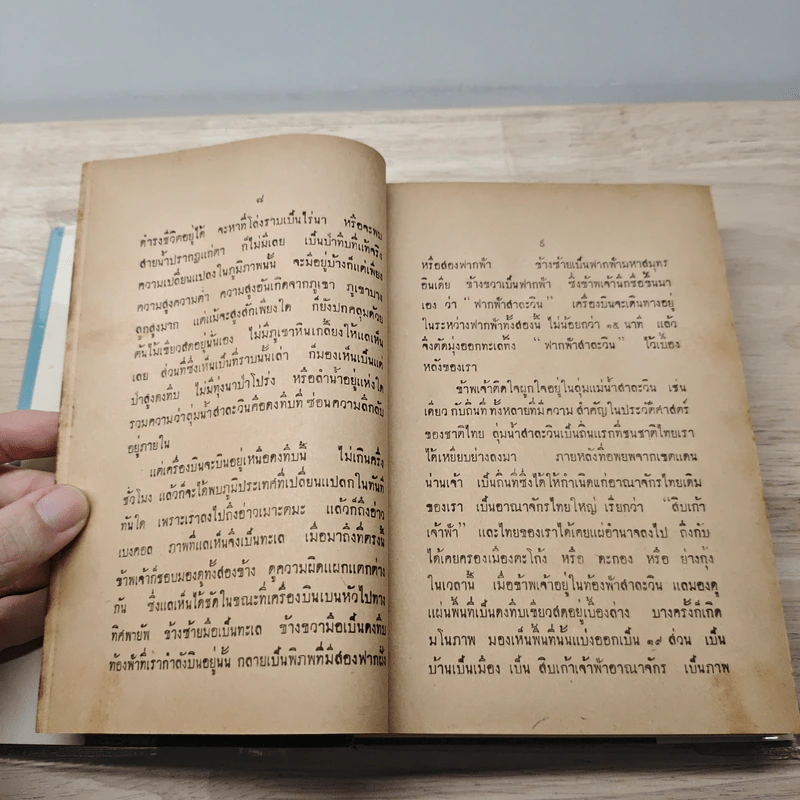 ๘
ดำรงชีวิตอยู่ได้ จะหาที่โล่งราบเป็นไร่นา หรือจะพบ
สายน้ำปรากฏแก่ตา ก็ไม่มีเลย เป็นป่าทึบที่แท้จริง
ความเปลี่ยนแปลงในภูมิภาพนั้น จะมีอยู่บ้างก็แต่เพียง
ความสูงความต่ำ ความสูงอันเกิดจากภูเขา ภูเขาบาง
ลูกสูงมาก แต่แม้จะสูงสักเพียงใด ก็ยังปกคลุมด้วย
ต้นไม้เขียวสดอยู่นั่นเอง ไม่มีภูเขาหินเกลี้ยงให้แลเห็น
เลย ส่วนที่ซึ่งเห็นเป็นที่ราบนั้นเล่า ก็มองเห็นเป็นแต่
ป่าสูงดงทึบ ไม่มีทุ่งนาป่าโปร่ง หรือลำน้ำอยู่แห่งใด
รวมความว่าลุ่มน้ำสาละวินคือดงทึบที่ซ่อนความลึกลับ
อยู่ภายใน
แต่เครื่องบินจะบินอยู่เหนือดงทึบนี้ ไม่เกินครึ่ง
ชั่วโมง แล้วก็จะได้พบภูมิประเทศที่เปลี่ยนแปลกในทันที
ทันใด เพราะเราลงไปถึงอ่าวเมาะตมะ แล้วก็ถึงอ่าว
เบงคอล ภาพที่แลเห็นจึงเป็นทะเล เมื่อมาถึงที่ตรงนี้
ข้าพเจ้าก็ชอบมองดูทั้งสองข้าง ดูความผิดแผกแตกต่าง
กัน ซึ่งแลเห็นได้ชัดในขณะที่เครื่องบินเบนหัวไปทาง
ทิศพายัพ ข้างซ้ายมือเป็นทะเล ข้างขวามือเป็นดงทึบ
ท้องฟ้าที่เรากำลังบินอยู่นั้น กลายเป็นพิภพที่มีสองฟากฝั่ง
๙
หรือสองฟากฟ้า ข้างซ้ายเป็นฟากฟ้ามหาสมุทร
อินเดีย ข้างขวาเป็นฟากฟ้า ซึ่งข้าพเจ้านึกชื่อขึ้นมา
เอง ว่า “ฟากฟ้าสาละวิน” เครื่องบินจะเดินทางอยู่
ในระหว่างฟากฟ้าทั้งสองนี้ ไม่น้อยกว่า ๑๕ นาที แล้ว
จึงตัดมุ่งออกทะเลทิ้ง “ฟากฟ้าสาละวิน” ไว้เบื้อง
หลังของเรา
ข้าพเจ้าติดใจผูกใจอยู่ในลุ่มแม่น้ำสาละวิน เช่น
เดียวกับถิ่นที่ทั้งหลายที่มีความสำคัญในประวัติศาสตร์
ของชาติไทย ลุ่มน้ำสาละวินเป็นถิ่นแรกที่ชนชาติไทยเรา
ได้เหยียบย่างลงมา ภายหลังที่อพยพจากเขตแดน
น่านเจ้า เป็นถิ่นที่ซึ่งได้ให้กำเนิดแก่อาณาจักรไทยเดิม
ของเรา เป็นอาณาจักรไทยใหญ่ เรียกว่า “สิบเก้า
เจ้าฟ้า” และไทยของเราได้เคยแผ่อำนาจลงไป ถึงกับ
ได้เคยครองเมืองตะโก้ง หรือ ตะกอง หรือ ย่างกุ้ง
ในเวลานี้ เมื่อข้าพเจ้าอยู่ในท้องฟ้าสาละวิน แลมองดู
แผ่นพื้นที่เป็นดงทึบเขียวสดอยู่เบื้องล่าง บางครั้งก็เกิด
มโนภาพ มองเห็นพื้นที่นั้นแบ่งออกเป็น ๑๙ ส่วน เป็น
บ้านเป็นเมือง เป็น สิบเก้าเจ้าฟ้าอาณาจักร เป็นภาพ